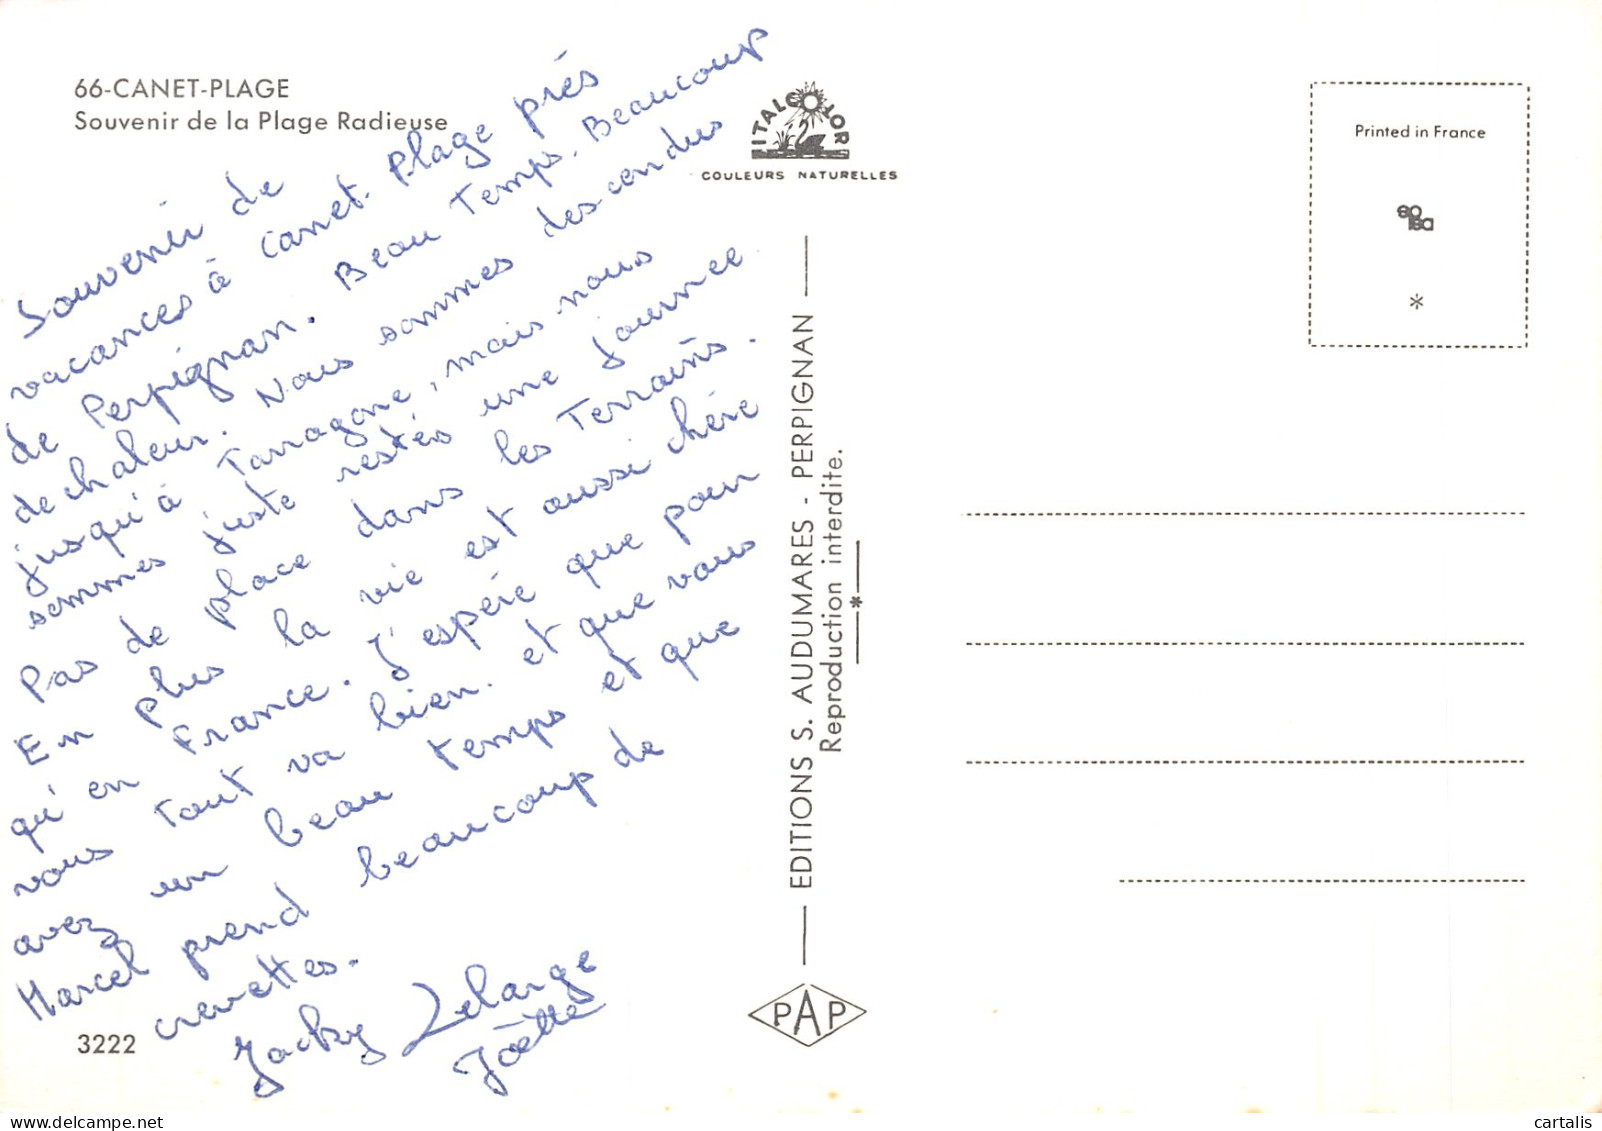 66-CANET-PLAGE
Souvenir de la Plage Radieuse
Souvenir de
vacances à Canet. Plage prés
de Perpignan. Beau Temps. Beaucoup
de chaleur. Nous sommes descendus
jusqu'à Tarragone, mais nous
sommes juste restés une journee
Pas de place dans les Terrains.
En plus la vie est aussi chére
qu'en France. J'espére que pour
vous Tout va bien. et que vous
avez un beau temps et que
Marcel prend beaucoup de
crevettes.
Jacky Lelarge
Joëlle
3222
ITALCOLOR
COULEURS NATURELLES
EDITIONS S. AUDUMARES - PERPIGNAN
Reproduction interdite.
*
PAP
Printed in France
*
cartalis